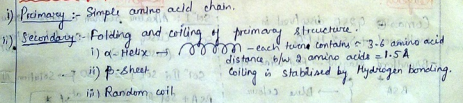 i) Primary :- Simple amino acid chain.
ii) Secondary :- Folding and coiling of primary structure.
i) α-Helix → - each turn contains ≈ 3.6 amino acid
distance b/w 2 amino acids = 1.5 A
ii) β-sheet Coiling is stablised by Hydrogen bonding.
iii) Random coil.